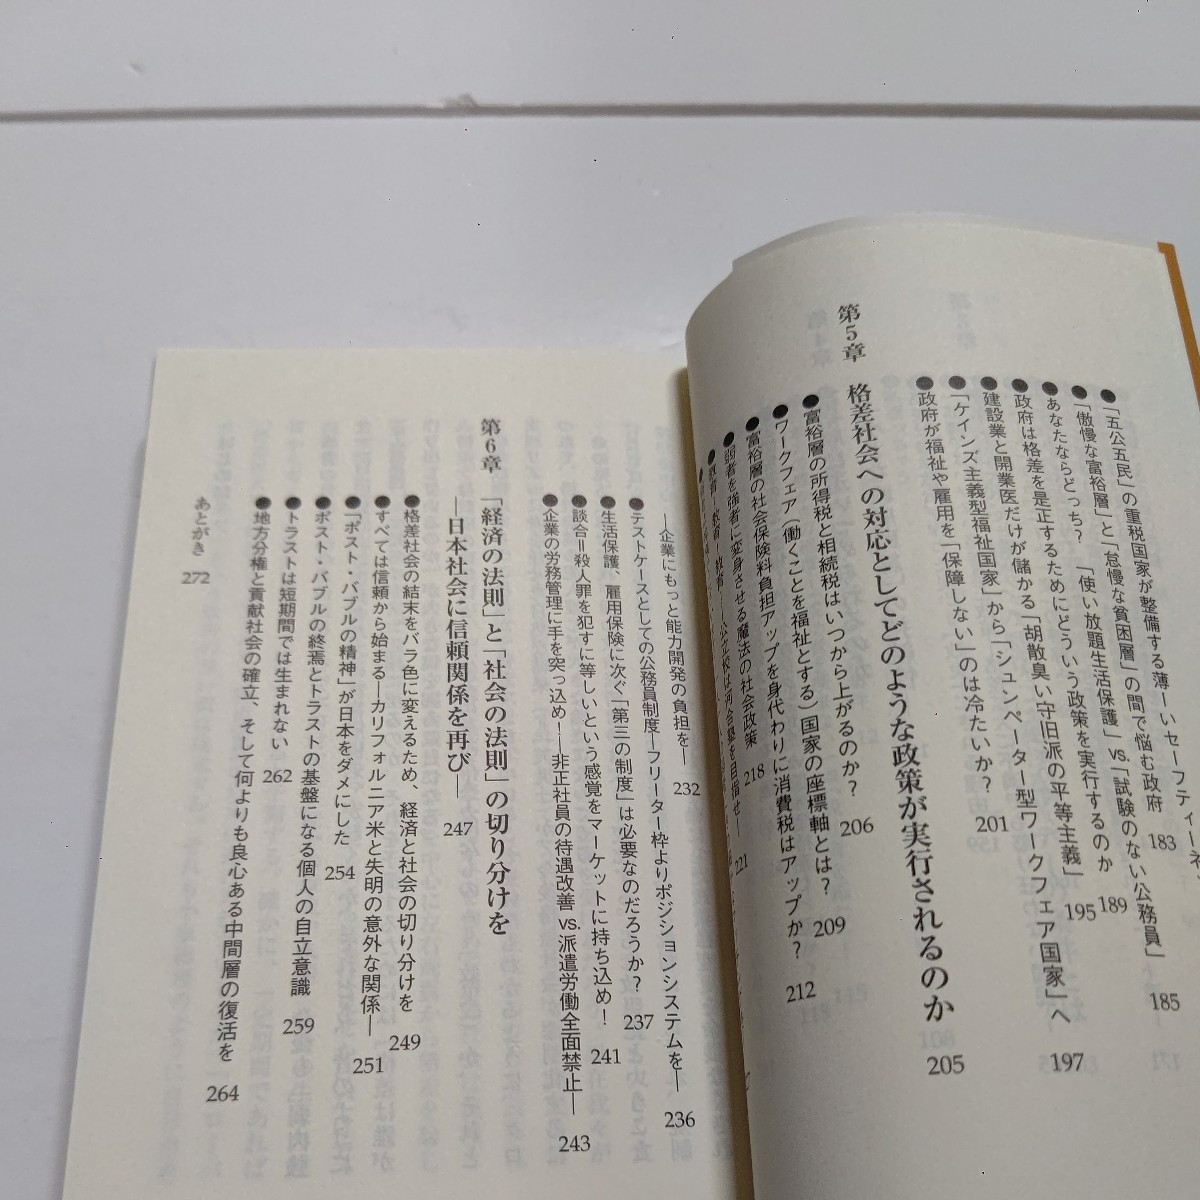 ●「五公五民」の重税国家が整備する薄ーいセーフティーネ
●「傲慢な富裕層」と「怠慢な貧困層」の間で悩む政府 183
●あなたならどっち？「使い放題生活保護」vs.「試験のない公務員」 185
●政府は格差を是正するためにどういう政策を実行するのか 189
●建設業と開業医だけが儲かる「胡散臭い守旧派の平等主義」 195
●「ケインズ主義型福祉国家」から「シュンペーター型ワークフェア国家」へ 197
●政府が福祉や雇用を「保障しない」のは冷たいか？ 201
第5章 格差社会への対応としてどのような政策が実行されるのか 205
●富裕層の所得税と相続税はいつから上がるのか？ 206
●ワークフェア（働くことを福祉とする）国家の座標軸とは？ 209
●富裕層の社会保険料負担アップを身代わりに消費税はアップか？ 212
●弱者を強者に変身させる魔法の社会政策 218
●教育！教育！教育！――公立校は河合塾を目指せ― 221
―企業にもっと能力開発の負担を― 232
●テストケースとしての公務員制度―フリーター枠よりポジションシステムを― 236
●生活保護、雇用保険に次ぐ「第三の制度」は必要なのだろうか？ 237
●談合＝殺人罪を犯すに等しいという感覚をマーケットに持ち込め！ 241
●企業の労務管理に手を突っ込め！―非正社員の待遇改善 vs. 派遣労働全面禁止― 243
第6章 「経済の法則」と「社会の法則」の切り分けを
―日本社会に信頼関係を再び― 247
●格差社会の結末をバラ色に変えるため、経済と社会の切り分けを 249
●すべては信頼から始まる―カリフォルニア米と失明の意外な関係― 251
●「ポスト・バブルの精神」が日本をダメにした 254
●ポスト・バブルの終焉とトラストの基盤になる個人の自立意識 259
●トラストは短期間では生まれない 262
●地方分権と貢献社会の確立、そして何よりも良心ある中間層の復活を 264
あとがき 272